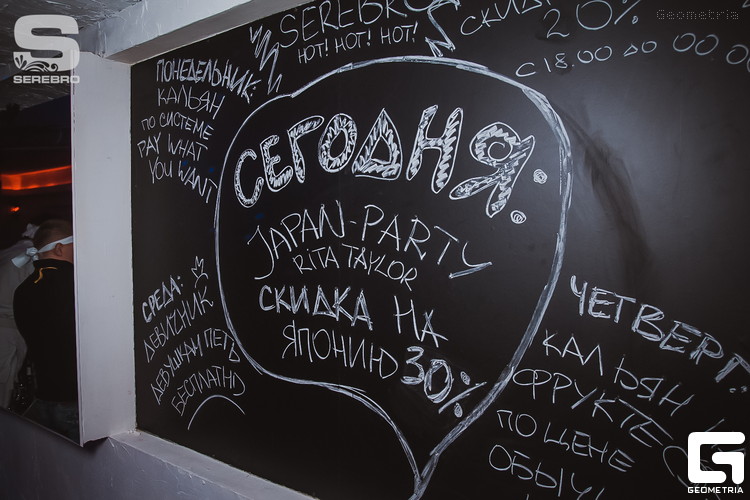 SEREBRO
Geometria
SEREBRO
HOT! HOT! HOT!
20%
С 18.00 ДО 00.00
ПОНЕДЕЛЬНИК:
КАЛЬЯН
ПО СИСТЕМЕ
PAY WHAT
YOU WANT
СЕГОДНЯ:
JAPAN-PARTY
RITA TAYLOR
СКИДКА НА
ЯПОНИЮ 30%
СРЕДА:
ДЕВИЧНИК
ДЕВУШКАМ ПЕТЬ
БЕСПЛАТНО
ЧЕТВЕРГ:
КАЛЬЯН
ФРУКТЕ
ПО ЦЕНЕ
GEOMETRIA